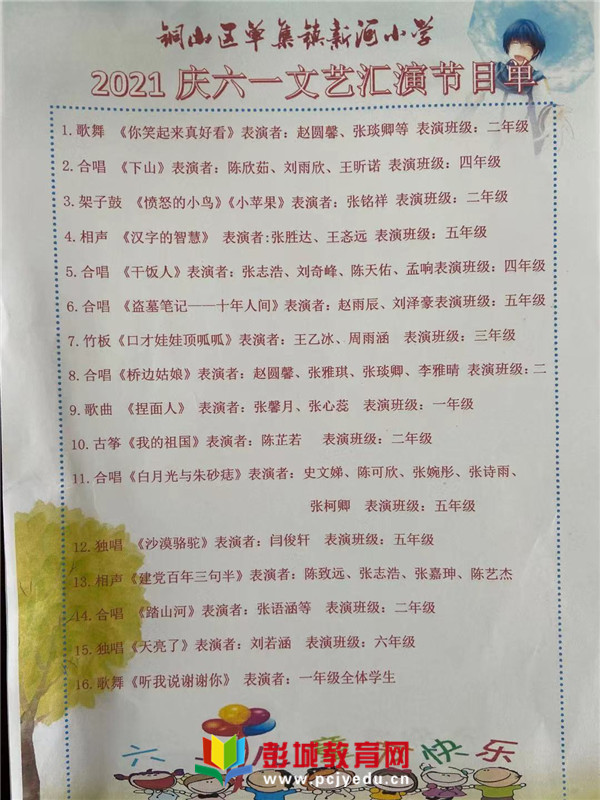 铜山区单集镇新河小学
2021 庆六一文艺汇演节目单
1. 歌舞 《你笑起来真好看》表演者：赵圆馨、张琰卿等 表演班级：二年级
2. 合唱 《下山》表演者：陈欣茹、刘雨欣、王昕诺 表演班级：四年级
3. 架子鼓 《愤怒的小鸟》《小苹果》表演者：张铭祥 表演班级：二年级
4. 相声 《汉字的智慧》 表演者:张胜达、王忞远 表演班级：五年级
5. 合唱 《干饭人》表演者：张志浩、刘奇峰、陈天佑、孟响表演班级：四年级
6. 合唱 《盗墓笔记——十年人间》表演者：赵雨辰、刘泽豪表演班级：五年级
7. 竹板《口才娃娃顶呱呱》表演者：王乙冰、周雨涵 表演班级：三年级
8. 合唱《桥边姑娘》表演者：赵圆馨、张雅琪、张琰卿、李雅晴 表演班级：二
9. 歌曲 《捏面人》 表演者：张馨月、张心蕊 表演班级：一年级
10. 古筝《我的祖国》表演者：陈芷若 表演班级：二年级
11. 合唱《白月光与朱砂痣》表演者：史文娣、陈可欣、张婉彤、张诗雨、
张柯卿 表演班级：五年级
12. 独唱 《沙漠骆驼》表演者：闫俊轩 表演班级：五年级
13. 相声《建党百年三句半》表演者：陈致远、张志浩、张嘉珅、陈艺杰
14. 合唱《踏山河》表演者：张语涵等 表演班级：二年级
15. 独唱《天亮了》表演者：刘若涵 表演班级：六年级
16. 歌舞《听我说谢谢你》 表演者：一年级全体学生
六 快乐
彭城教育网
www.pcjyedu.cn